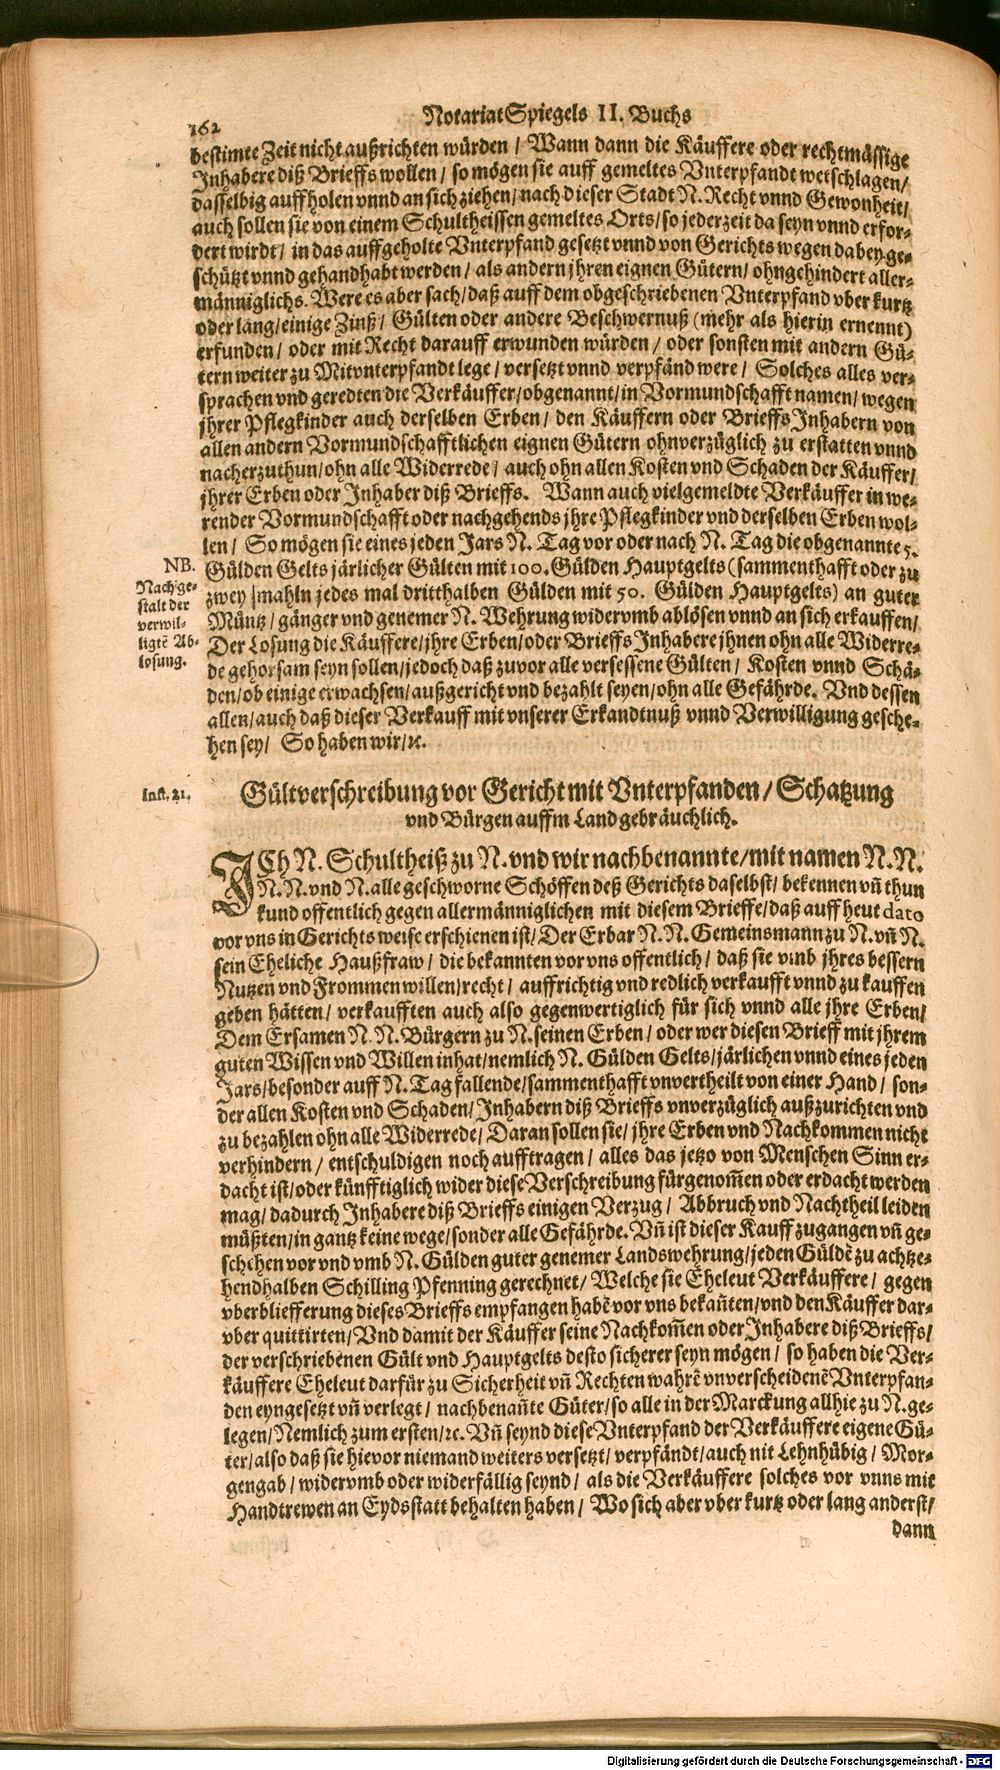 162
Notariat Spiegels II. Buchs
bestimte Zeit nicht außrichten würden / Wann dann die Käuffere oder rechtmässige
Inhabere diß Brieffs wollen / so mögen sie auff gemeltes Vnterpfandt wetschlagen /
dasselbig auffholen vnnd an sich ziehen / nach dieser Stadt N. Recht vnnd Gewonheit /
auch sollen sie von einem Schultheissen gemeltes Orts / so jederzeit da seyn vnnd erfor-
dert wirdt / in das auffgeholte Vnterpfand gesetzt vnnd von Gerichts wegen dabey ge-
schützt vnnd gehandhabt werden / als andern jhren eignen Gütern / ohngehindert aller-
männiglichs. Were es aber sach / daß auff dem obgeschriebenen Vnterpfand vber kurtz
oder lang / einige Zinß / Gülten oder andere Beschwernuß (mehr als hierin ernennt)
erfunden / oder mit Recht darauff erwunden würden / oder sonsten mit andern Gü-
tern weiter zu Mitvnterpfandt lege / versetzt vnnd verpfänd were / Solches alles ver-
sprachen vnd geredten die Verkäuffer / obgenannt / in Vormundschafft namen / wegen
jhrer Pflegkinder auch derselben Erben / den Käuffern oder Brieffs Inhabern von
allen andern Vormundschafftlichen eignen Gütern ohnverzüglich zu erstatten vnnd
nacherzuthun / ohn alle Widerrede / auch ohn allen Kosten vnd Schaden der Käuffer /
jhrer Erben oder Inhaber diß Brieffs. Wann auch vielgemeldte Verkäuffer in we-
render Vormundschafft oder nachgehends jhre Pflegkinder vnd derselben Erben wol-
len / So mögen sie eines jeden Jars N. Tag vor oder nach N. Tag die obgenannte 5.
Gülden Gelts järlicher Gülten mit 100. Gülden Hauptgelts (sammenthafft oder zu
zwey mahln jedes mal dritthalben Gülden mit 50. Gülden Hauptgelts) an guter
Müntz / gänger vnd genemer N. Wehrung widervmb ablösen vnnd an sich erkauffen /
Der Losung die Käuffere / jhre Erben / oder Brieffs Inhabere jhnen ohn alle Widerre-
de gehorsam seyn sollen / jedoch daß zuvor alle versessene Gülten / Kosten vnnd Schä-
den / ob einige erwachsen / außgericht vnd bezahlt seyen / ohn alle Gefährde. Vnd dessen
allen / auch daß dieser Verkauff mit vnserer Erkandtnuß vnnd Verwilligung gesche-
hen sey / So haben wir / ꝛc.
NB.
Nach ge-
stalt der
verwil-
ligtē Ab-
losung.
Inst. 21.
Gültverschreibung vor Gericht mit Vnterpfanden / Schatzung
vnd Bürgen auffm Land gebräuchlich.
ICh N. Schultheiß zu N. vnd wir nachbenannte / mit namen N. N.
N. N. vnd N. alle geschworne Schöffen deß Gerichts daselbst / bekennen vñ thun
kund offentlich gegen allermänniglichen mit diesem Brieffe / daß auff heut dato
vor vns in Gerichts weise erschienen ist / Der Erbar N. N. Gemeinsmann zu N. vñ N.
sein Eheliche Haußfraw / die bekannten vor vns offentlich / daß sie vmb jhres bessern
Nutzen vnd Frommen willen / recht / auffrichtig vnd redlich verkaufft vnnd zu kauffen
geben hätten / verkaufften auch also gegenwertiglich für sich vnnd alle jhre Erben /
Dem Ersamen N. N. Bürgern zu N. seinen Erben / oder wer diesen Brieff mit jhrem
guten Wissen vnd Willen inhat / nemlich N. Gülden Gelts / järlichen vnnd eines jeden
Jars / besonder auff N. Tag fallende / sammenthafft vnvertheilt von einer Hand / son-
der allen Kosten vnd Schaden / Inhabern diß Brieffs vnverzüglich außzurichten vnd
zu bezahlen ohn alle Widerrede / Daran sollen sie / jhre Erben vnd Nachkommen nicht
verhindern / entschuldigen noch aufftragen / alles das jetzo von Menschen Sinn er-
dacht ist / oder künfftiglich wider diese Verschreibung fürgenom̃en oder erdacht werden
mag / dadurch Inhabere diß Brieffs einigen Verzug / Abbruch vnd Nachtheil leiden
müßten / in gantz keine wege / sonder alle Gefährde. Vñ ist dieser Kauff zugangen vñ ge-
schehen vor vnd vmb N. Gülden guter genemer Landswehrung / jeden Güldē zu achtze-
hendhalben Schilling Pfenning gerechnet / Welche sie Eheleut Verkäuffere / gegen
vberblieffereung dieses Brieffs empfangen habē vor vns bekañten / vnd den Käuffer dar-
vber quittirten / Vnd damit der Käuffer seine Nachkom̃en oder Inhabere diß Brieffs /
der verschriebenen Gült vnd Hauptgelts desto sicherer seyn mögen / so haben die Ver-
käuffere Eheleut darfür zu Sicherheit vñ Rechten wahrē vnverscheidenē Vnterpfan-
den eyngesetzt vñ verlegt / nachbenañte Güter / so alle in der Marckung allhie zu N. ge-
legen / Nemlich zum ersten / ꝛc. Vñ seynd diese Vnterpfand der Verkäuffere eigene Gü-
ter / also daß sie hievor niemand weiters versetzt / verpfändt / auch nit Lehnhübig / Mor-
gengab / widervmb oder widerfällig seynd / als die Verkäuffere solches vor vnns mit
Handtrewen an Eydsstatt behalten haben / Wo sich aber vber kurtz oder lang anderst /
dann
Digitalisierung gefördert durch die Deutsche Forschungsgemeinschaft - DFG